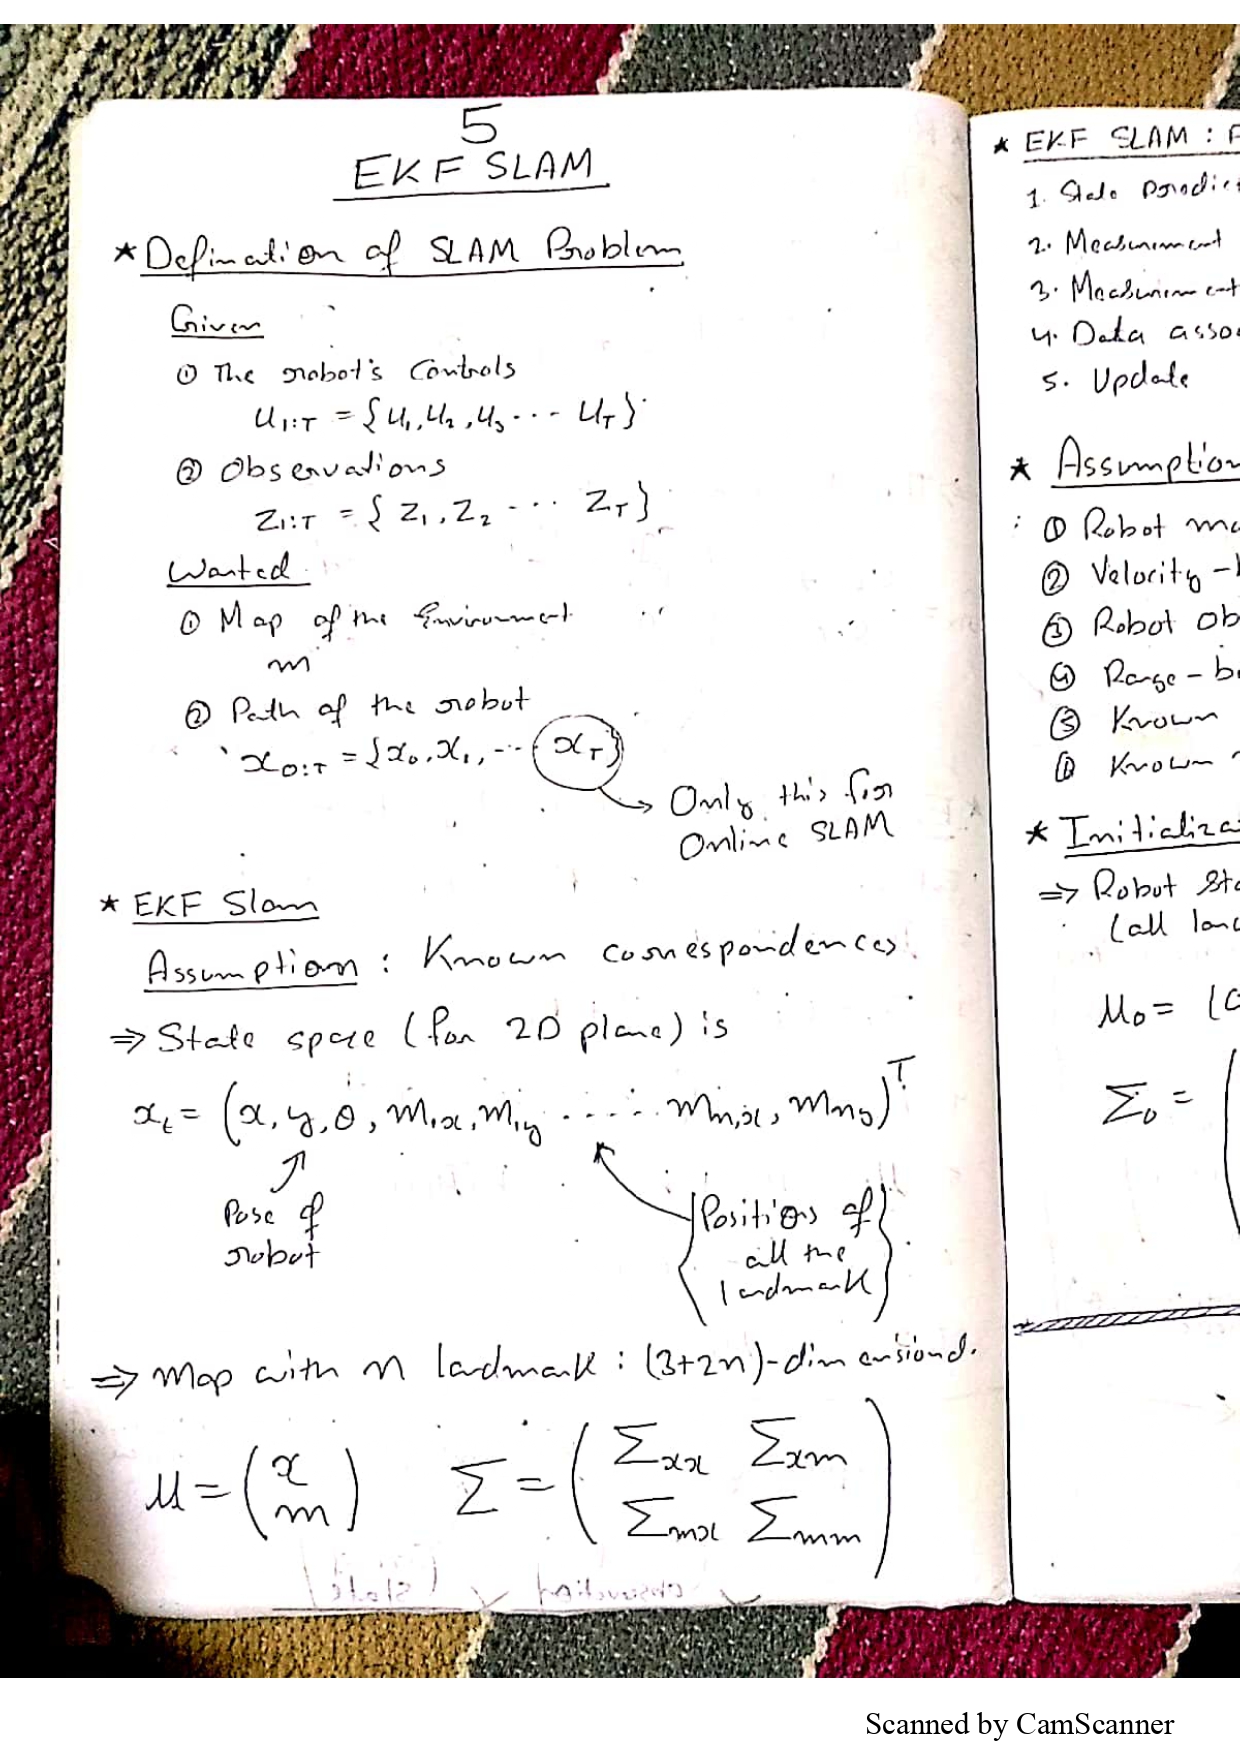 5
EKF SLAM
* Defination of SLAM Problem
Given
① The robot's Controls
u₁:T = {u₁, u₂, u₃ ... u_T}
② Observations
z₁:T = {z₁, z₂ ... z_T}
Wanted
① Map of the Environment
m
② Path of the robot
x₀:T = {x₀, x₁, ... x_T}
→ Only this for
Online SLAM
* EKF Slam
Assumption : Known correspondences
⇒ State space (for 2D plane) is
x_t = (x, y, θ, m₁,x, m₁,y ..... m_n,x, m_n,y)^T
Pose of
robot
Positions of
all the
landmark
⇒ Map with n landmark : (3+2n)-dimensional.
μ = (x m) Σ = (Σxx Σxm
Σmx Σmm)
* EKF SLAM :
1. State
2. Measurement
3. Measurement
4. Data
5. Update
* Assumption
① Robot
② Velocity -
③ Robot
④ Range -
⑤ Known
⑥ Known
*
⇒ Robot
(all
μ₀ = (
Σ₀ = (
Scanned by CamScanner